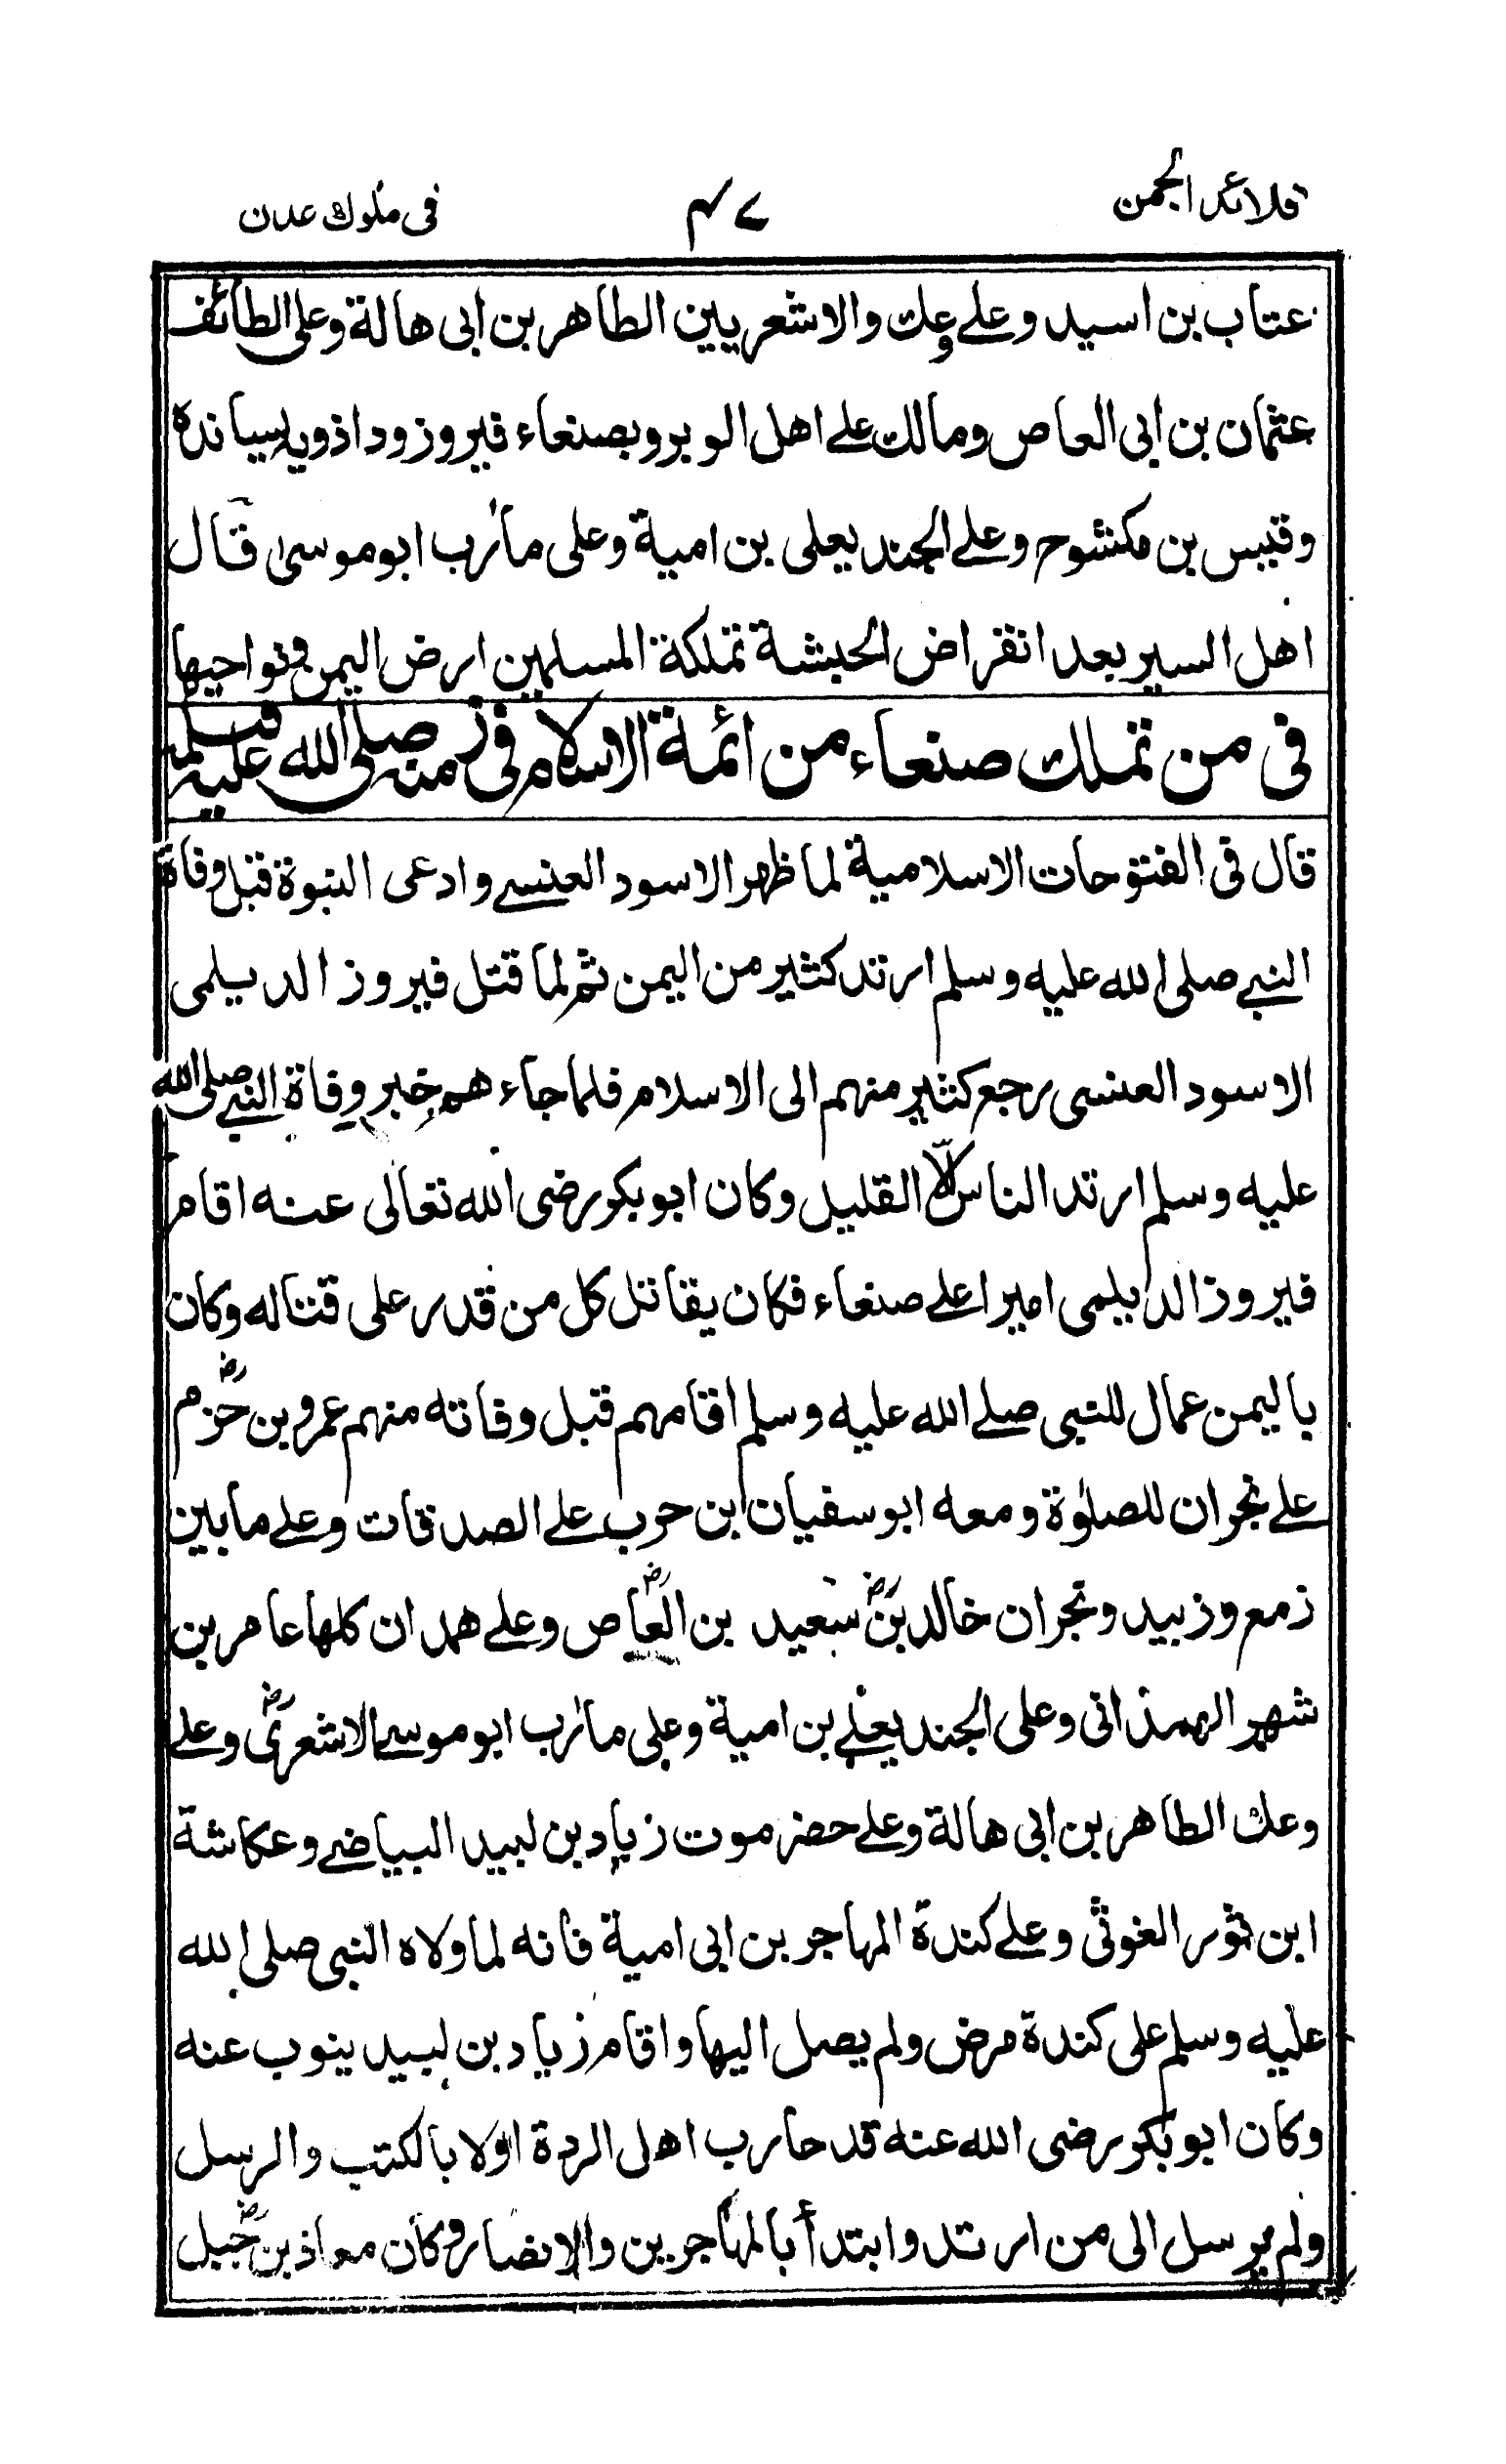 قلائد الجمن ٤٧ فى ملوك عدن
عتاب بن اسيد وعلے وعك والاشعريين الطاهر بن ابى هالة وعلى الطائف
عثمان بن ابى العاص ومالك علے اهل الوبر وبصنعاء فيروز وداذويه يسانده
وقيس بن مكشوح وعلے الجند يعلى بن امية وعلى مأرب ابوموسىٰ قال
اهل السير بعد انقراض الحبشة تملكة المسلمين ارض اليمن ونواحيها
فى من تملك صنعاء من ائمة الاسلام فى زمنه صلى الله عليه وسلم
قال فى الفتوحات الاسلامية لما ظهر الاسود العنسے وادعى النبوة قبل وفاة
النبے صلى الله عليه وسلم ارتد كثير من اليمن ثم لما قتل فيروز الديلمى
الاسود العنسى رجع كثير منهم الى الاسلام فلما جاء هم خبر وفاة النبے صلى الله
عليه وسلم ارتد الناس الا القليل وكان ابوبكر رضى الله تعالى عنه اقام
فيروز الديلمى اميرا علے صنعاء فكان يقاتل كل من قدر على قتاله وكان
باليمن عمال للنبى صلے الله عليه وسلم اقامهم قبل وفاته منهم عمرو بن حزمؓ
علے نجران للصلوٰة ومعه ابوسفيان ابن حرب علے الصدقات وعلے مابين
زمع وزبيد ونجران خالد بنؓ سعيد بن العاصؓ وعلے همدان كلها عامر بن
شهر الهمذانى وعلى الجند يعلے بن امية وعلى مأرب ابوموسے الاشعرىؓ وعلے
وعك الطاهر بن ابى هالة وعلے حضرموت زياد بن لبيد البياضے وعكاشة
ابن ثور الغوثى وعلے كندة المهاجر بن ابى امية فانه لما ولاه النبى صلى الله
عليه وسلم على كندة مرض ولم يصل اليها واقام زياد بن لبيد ينوب عنه
وكان ابوبكر رضى الله عنه قد حارب اهل الردة اولا بالكتب والرسل
ولم يرسل الى من ارتد وابتدأ بالمهاجرين والانصار وكان معاذ بنؓ جبل